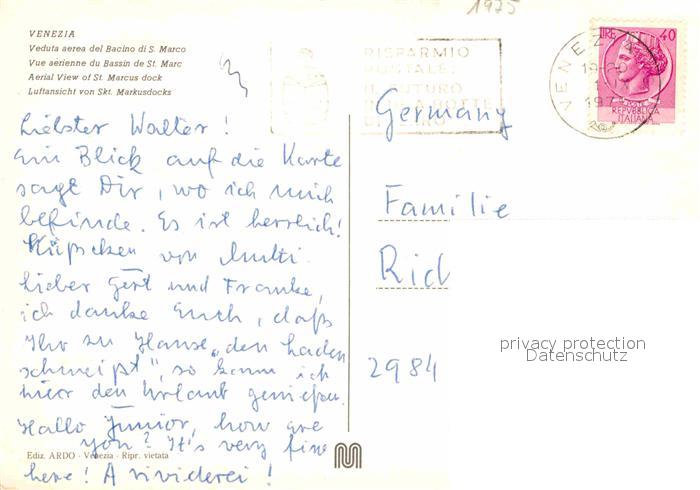 1975
VENEZIA
Veduta aerea del Bacino di S. Marco
Vue aérienne du Bassin de St. Marc
Aerial View of St. Marcus dock
Luftansicht von Skt. Markusdocks
RISPARMIO
POSTALE:
IL FUTURO
VENEZIA
19-20
197
LIRE 40
REPVBBLICA
ITALIANA
Liebster Walter!
Ein Blick auf die Karte
sagt Dir, wo ich mich
befinde. Es ist herrlich!
Küßchen von Mutti.
Lieber Gert und Frauke,
ich danke Euch, daß
Ihr zu Hause „den Laden
schmeißt", so kann ich
hier den Urlaub genießen.
Hallo Junior, how are
you? It's very fine
here! A rividerci!
Germany
Familie
Ric
2984
privacy protection
Datenschutz
Ediz. ARDO - Venezia - Ripr. vietata